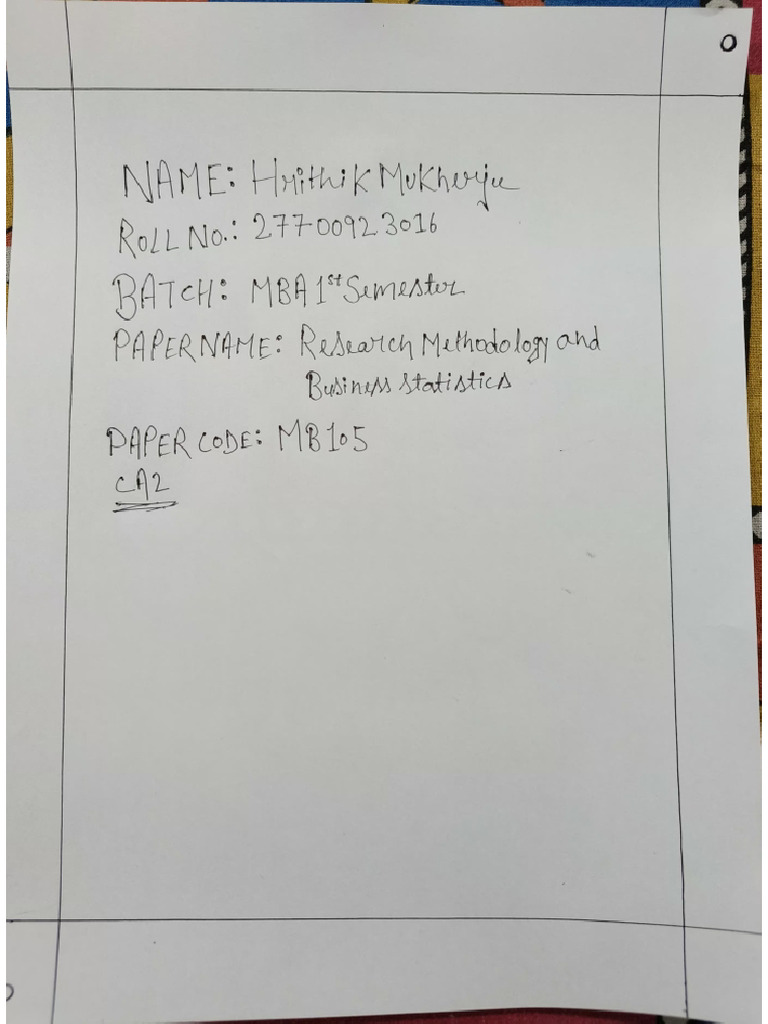 0
NAME: Hrithik Mukherjee
ROLL NO.: 27700923016
BATCH: MBA 1st Semester
PAPER NAME: Research Methodology and
Business Statistics
PAPER CODE: MB105
CA2